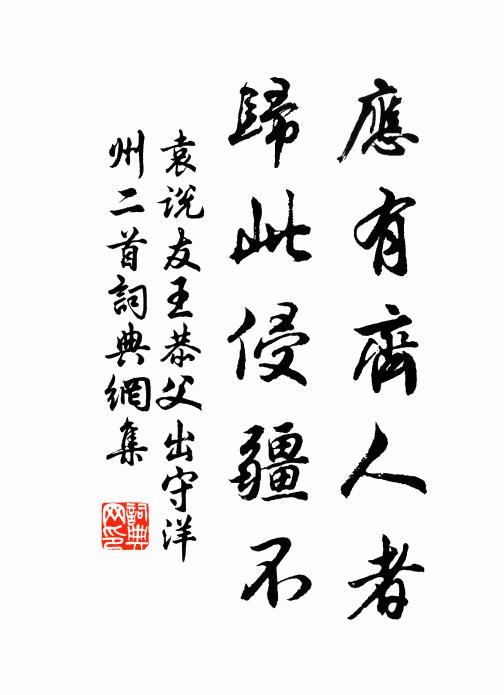 應有齊人者
歸此侵疆不
袁説友王恭父出守洋
州二首詞典網集
詞典
网印